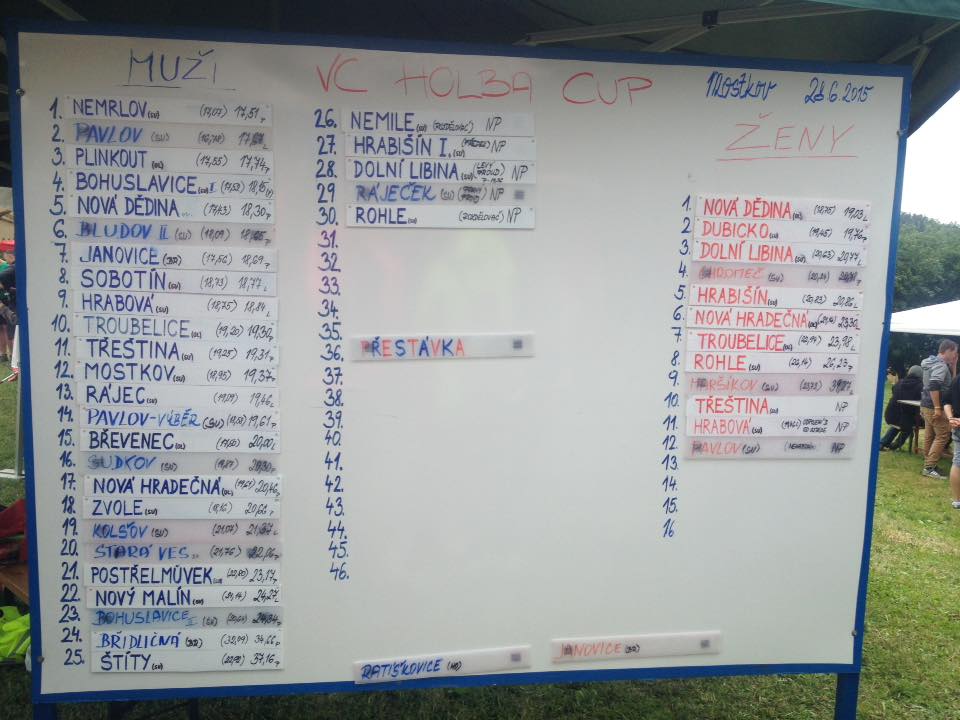 MUŽI
VC HOLBA CUP
Mostkov 28.6.2015
ŽENY
1. NEMILOV (SU) (17,07) 17,51 P
2. PAVLOV (SU)
3. PLINKOUT (OL) (17,55) 17,74 P
4. BOHUSLAVICE (SU) I (17,53)
5. NOVÁ DĚDINA (17,43) 18,30 P
6. BLUDOV II (SU) (18,09)
7. JANOVICE (BR) (17,56) 18,69 P
8. SOBOTÍN (SU) (18,73) 18,77 L
9. HRABOVÁ (SU) (18,75) 18,84 L
10. TROUBELICE (OL) (19,20) 19,30
11. TŘEŠTINA (SU) (19,25) 19,31 P
12. MOSTKOV (SU) (18,95) 19,37 P
13. RÁJEC (SU) (19,09) 19,46
14. PAVLOV-VÝBĚR (SU) 19,61 P
15. BŘEVENEC (OL) 20,00
16. SUDKOV (SU)
17. NOVÁ HRADEČNÁ (OL) (19,61) 20,46 P
18. ZVOLE (SU) 20,62 P
19. KOLŠOV (SU) (21,07)
20. STARÁ VES (21,76) 22,06 P
21. POSTŘELMŮVEK (SU) 23,17 P
22. NOVÝ MALÍN (SU) (21,14) 24,27 L
23. BOHUSLAVICE II (SU)
24. BŘIDLIČNÁ (BR) (32,09) 34,66
25. ŠTÍTY (SU) 37,16 P
26. NEMILE (SU) (ROZDĚLOVAČ) NP
27. HRABIŠÍN I. (SU) NP
28. DOLNÍ LIBINA (SU) (LEVÝ PROUD NP
29 RÁJEČEK (SU) NP
30. ROHLE (SU) (ROZDĚLOVAČ) NP
31.
32
33.
34.
35.
36. PŘESTÁVKA
37.
38.
39.
40.
41.
42.
43.
44.
45.
46.
1. NOVÁ DĚDINA (SU) (18,75) 19,03 L
2. DUBICKO (SU) (19,45) 19,76 P
3. DOLNÍ LIBINA (SU) (20,63) 20,77 L
4. CHROMEČ (SU)
5 HRABIŠÍN (SU) (20,23) 20,86 L
6. NOVÁ HRADEČNÁ (OL) 23,30
7 TROUBELICE (OL) 23,98 L
8 ROHLE (SU) (22,14) 26,23 P
9. MARŠÍKOV (SU)
10. TŘEŠTINA (SU) NP
11. HRABOVÁ (SU) NP
12 PAVLOV (SU) NP
13.
14.
15.
16
RATÍŠKOVICE (HO)
JANOVICE (BR)